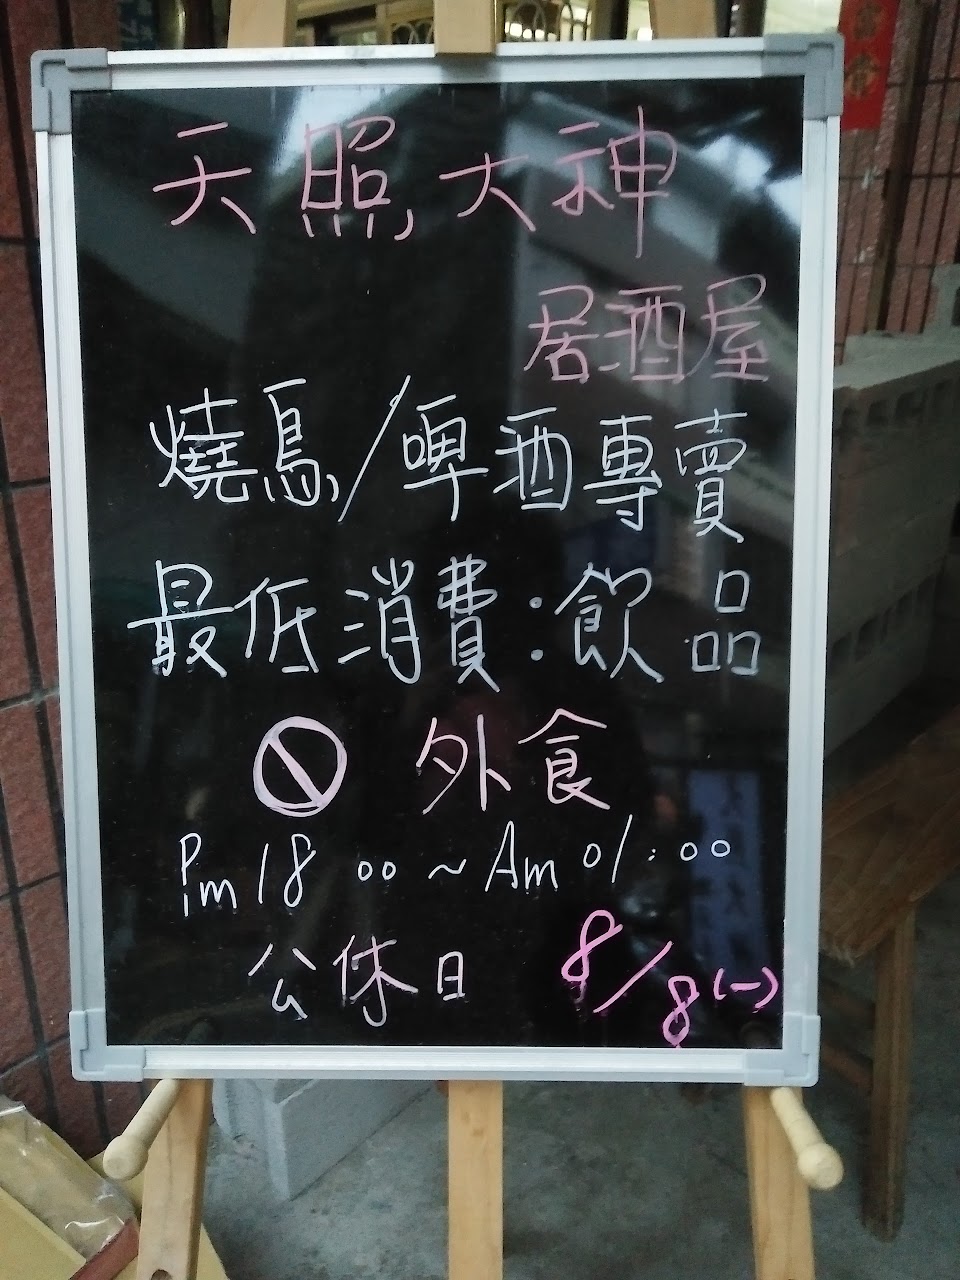 天照大神
居酒屋
燒鳥/啤酒專賣
最低消費:飲品
外食
Pm 18 00~Am 01:00
公休日 8/8(一)